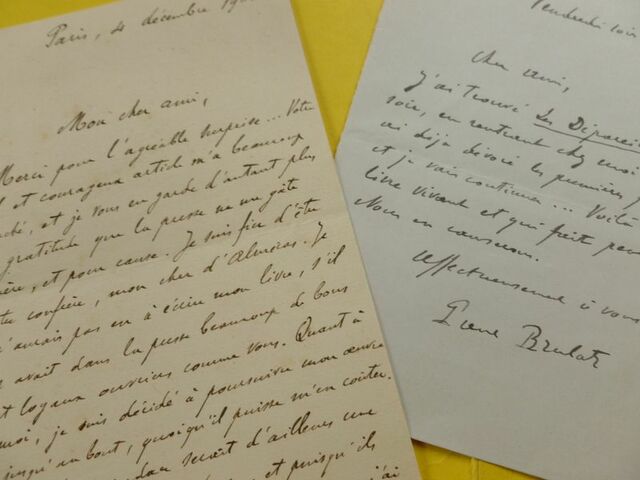 Paris, 4 décembre 19
Mon cher ami,
Merci pour l'agréable surprise... Votre
et courageux article m'a beaucoup
et je vous en garde d'autant plus
gratitude que la presse ne me gâte
et pour cause. Je suis fier d'être
confrère, mon cher d'Alméras. Je
n'aurais pas eu à écrire mon livre, s'il
avait dans la presse beaucoup de bons
et loyaux ouvriers comme vous. Quant à
moi, je suis décidé à poursuivre mon œuvre
jusqu'au bout, quoiqu'il puisse m'en coûter.
serait d'ailleurs une
et puisqu'ils
j'ai
Vendredi soir
Cher ami,
J'ai trouvé Les
soir, en rentrant chez moi
ai déjà dévoré les premières
et je vais continuer... Voilà
livre vivant et qui fait
Nous en causerons.
Affectueusement à vous
Pierre Brulat